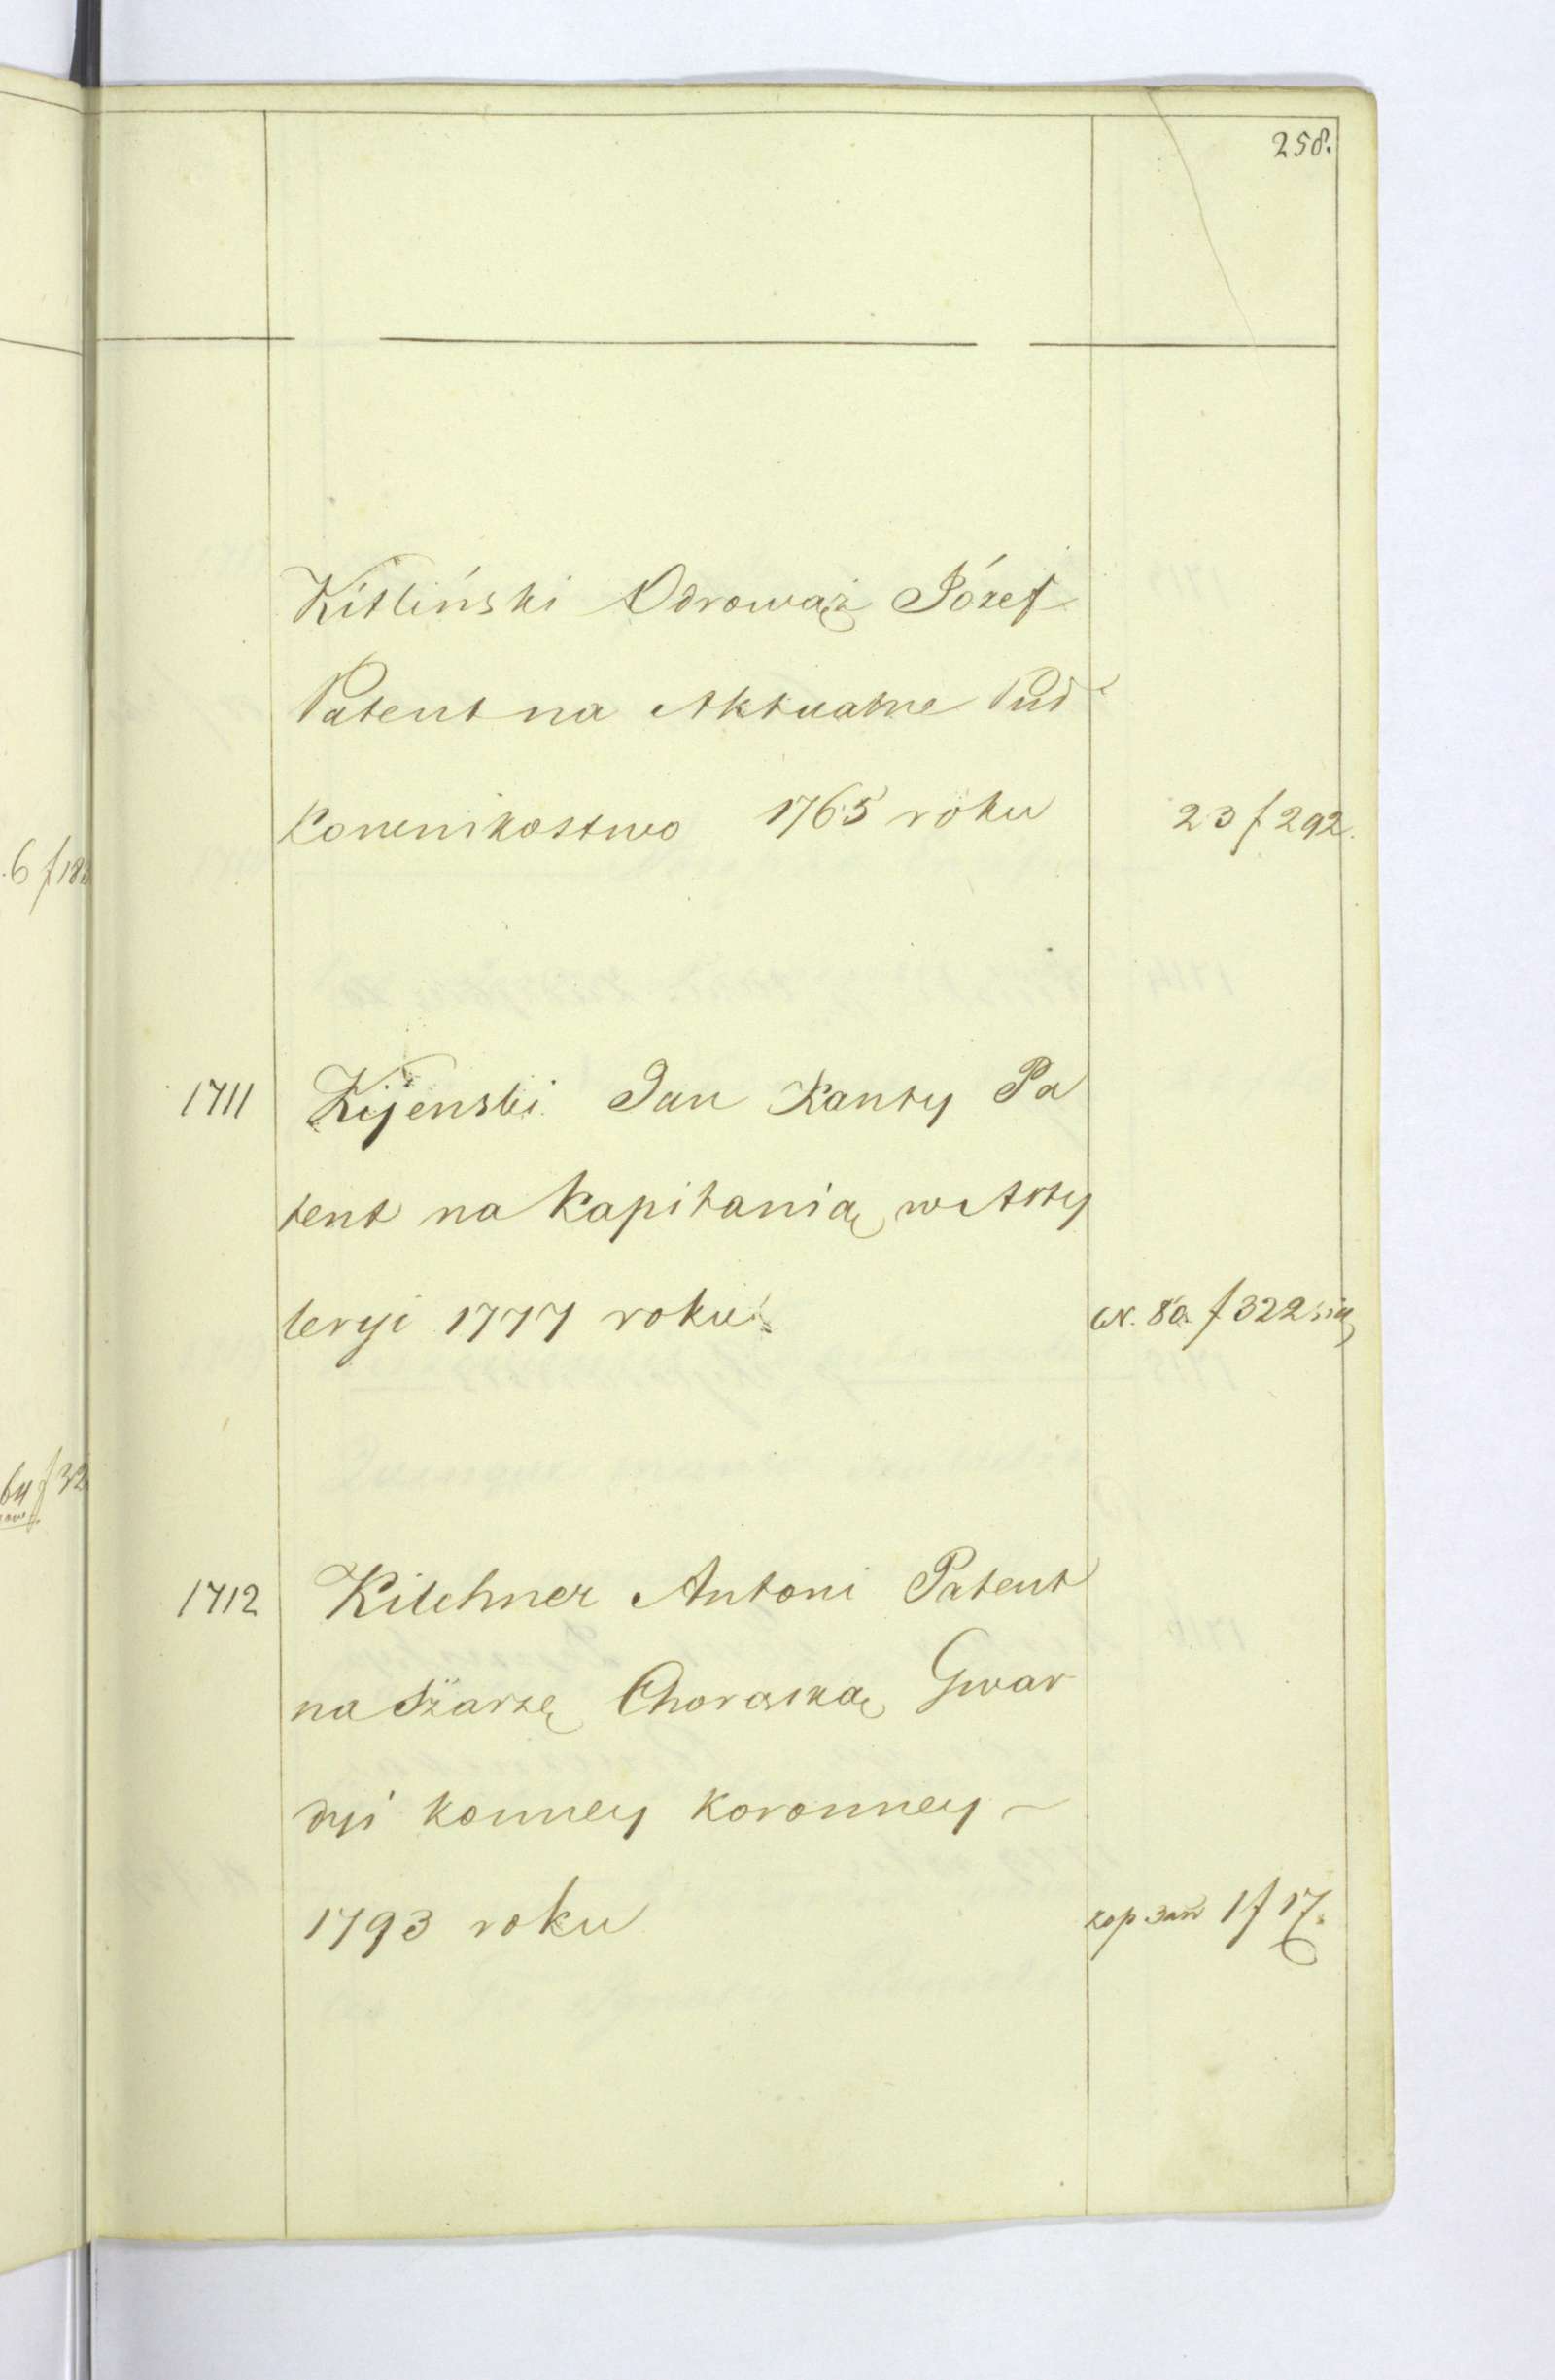 258.
Kitliński Odrowąż Józef
Patent na Aktualne Puł
kownikostwo 1765 roku 23 f 292.
6 f 18
1711 Kijenski Jan Kanty Pa
tent na Kapitanią w Arty
leryi 1777 roku N. 80. f 322
64 f 32
1712 Kilchner Antoni Patent
na Szarzę Chorąską Gwar
dyi konney koronney
1793 roku 1 f 17.